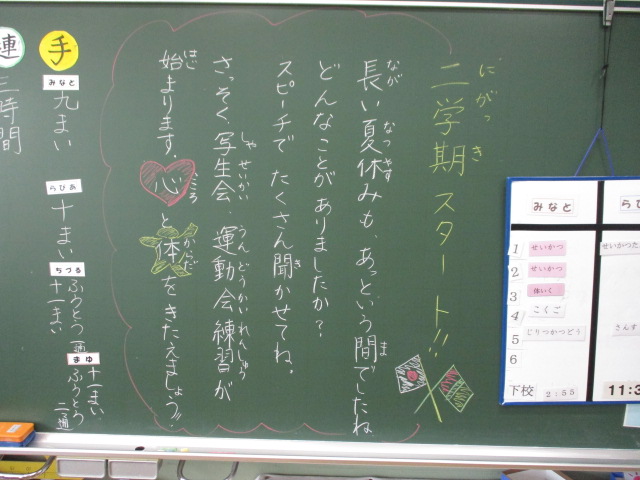 二学期スタート!!
にがっき
長い夏休みも、あっという間でしたね
なが なつやす ま
どんなことがありましたか?
スピーチで たくさん聞かせてね。
き
さっそく、写生会、運動会練習が
しゃせいかい うんどうかいれんしゅう
始まります。心と体をきたえましょう!!
はじ こころ からだ
手
みなと
九まい
らびあ
十まい
ちづる
十一まい
ふうとう
一通
まゆ
十一まい
ふうとう
二通
連
三時間
みなと
1 せいかつ
2 せいかつ
3 体いく
4 こくご
5 じりつかつどう
6
下校 2:55
らび
せいかつた
さんす
11:3